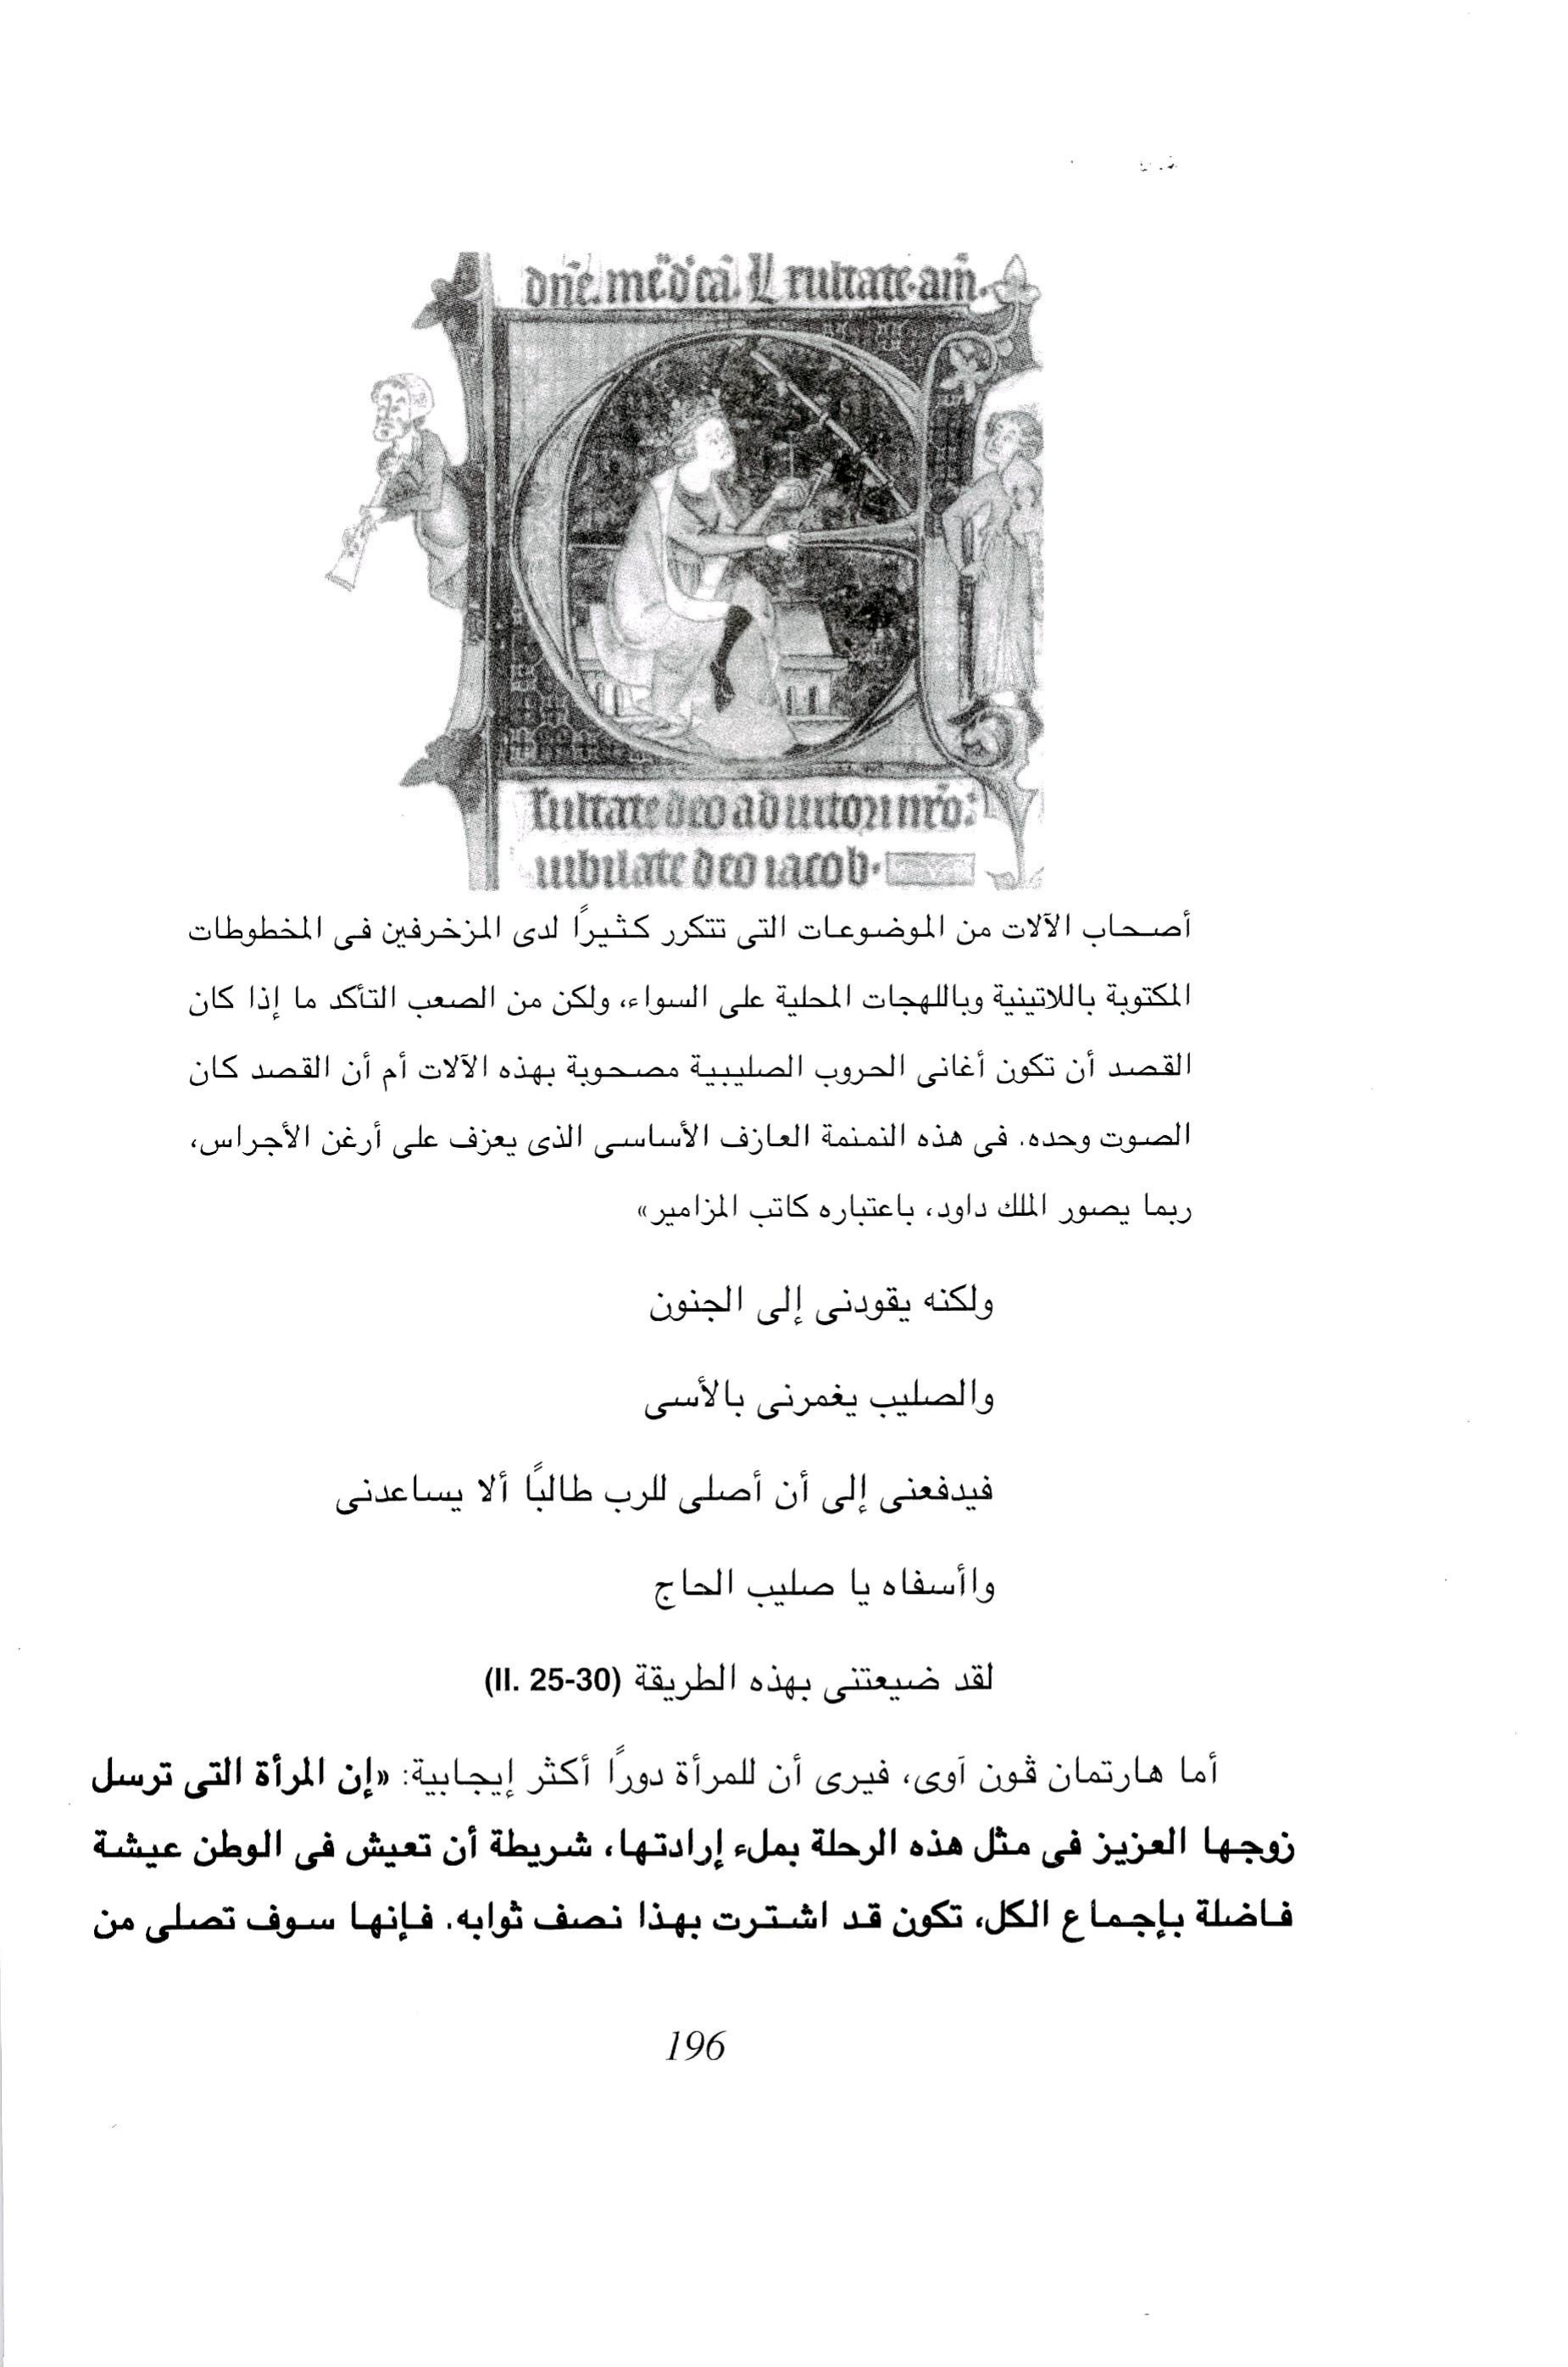 dñe. med̃cā. Exultate. am̃.
Exultate deo adiutori nr̃o:
iubilate deo iacob.
أصحاب الآلات من الموضوعات التى تتكرر كثيرًا لدى المزخرفين فى المخطوطات
المكتوبة باللاتينية وباللهجات المحلية على السواء، ولكن من الصعب التأكد ما إذا كان
القصد أن تكون أغانى الحروب الصليبية مصحوبة بهذه الآلات أم أن القصد كان
الصوت وحده. فى هذه النمنمة العازف الأساسى الذى يعزف على أرغن الأجراس،
ربما يصور الملك داود، باعتباره كاتب المزامير»
ولكنه يقودنى إلى الجنون
والصليب يغمرنى بالأسى
فيدفعنى إلى أن أصلى للرب طالبًا ألا يساعدنى
واأسفاه يا صليب الحاج
لقد ضيعتنى بهذه الطريقة (II. 25-30)
أما هارتمان ڤون آوى، فيرى أن للمرأة دورًا أكثر إيجابية: «إن المرأة التى ترسل
زوجها العزيز فى مثل هذه الرحلة بملء إرادتها، شريطة أن تعيش فى الوطن عيشة
فاضلة بإجماع الكل، تكون قد اشترت بهذا نصف ثوابه. فإنها سوف تصلى من
196